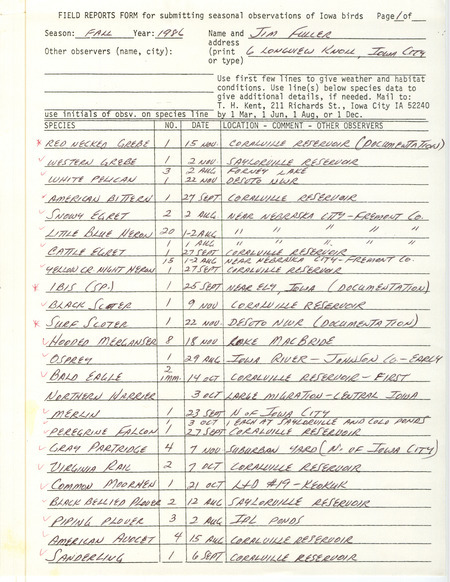 FIELD REPORTS FORM for submitting seasonal observations of Iowa birds Page 1 of
Season: FALL Year: 1986 Name and JIM FULLER
address
Other observers (name, city): (print 6 LONGVIEW KNOLL, IOWA CITY
or type)
Use first few lines to give weather and habitat
conditions. Use line(s) below species data to
give additional details, if needed. Mail to:
T. H. Kent, 211 Richards St., Iowa City IA 52240
use initials of obsv. on species line by 1 Mar, 1 Jun, 1 Aug, or 1 Dec.
SPECIES NO. DATE LOCATION - COMMENT - OTHER OBSERVERS
* RED NECKED GREBE 1 15 NOV. CORALVILLE RESERVOIR (DOCUMENTATION)
WESTERN GREBE 1 2 NOV SAYLORVILLE RESERVOIR
3 2 AUG FORNEY LAKE
WHITE PELICAN 1 22 NOV DESOTO NWR
AMERICAN BITTERN 1 27 SEPT CORALVILLE RESERVOIR
SNOWY EGRET 2 2 AUG NEAR NEBRASKA CITY - FREMONT CO.
LITTLE BLUE HERON 20 1-2 AUG " " " " "
1 1 AUG " " " " "
CATTLE EGRET 1 27 SEPT CORALVILLE RESERVOIR
15 1-2 AUG NEAR NEBRASKA CITY - FREMONT CO.
YELLOW CR. NIGHT HERON 1 27 SEPT CORALVILLE RESERVOIR
* IBIS (SP.) 1 25 SEPT NEAR ELY, IOWA (DOCUMENTATION)
BLACK SCOTER 1 9 NOV CORALVILLE RESERVOIR
* SURF SCOTER 1 22 NOV DESOTO NWR (DOCUMENTATION)
HOODED MERGANSER 8 18 NOV LAKE MACBRIDE
OSPREY 1 29 AUG IOWA RIVER - JOHNSON CO - EARLY
2
BALD EAGLE imm. 14 OCT CORALVILLE RESERVOIR - FIRST
NORTHERN HARRIER 3 OCT LARGE MIGRATION - CENTRAL IOWA
MERLIN 1 23 SEPT N OF IOWA CITY
1 3 OCT 1 EACH AT SAYLORVILLE AND COLO PONDS
PEREGRINE FALCON 1 27 SEPT CORALVILLE RESERVOIR
GRAY PARTRIDGE 4 7 NOV SUBURBAN YARD (N. OF IOWA CITY)
VIRGINIA RAIL 2 7 OCT CORALVILLE RESERVOIR
COMMON MOORHEN 1 21 OCT L+D #19 - KEOKUK
BLACK BELLIED PLOVER 2 12 AUG SAYLORVILLE RESERVOIR
PIPING PLOVER 3 2 AUG IPL PONDS
AMERICAN AVOCET 4 15 AUG CORALVILLE RESERVOIR
SANDERLING 1 6 SEPT CORALVILLE RESERVOIR